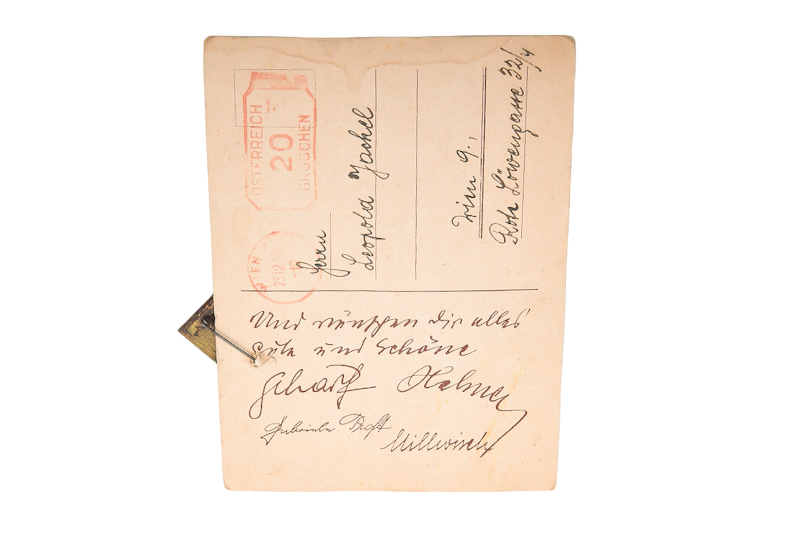 ÖSTERREICH
20
GROSCHEN
WIEN
23.12
-19
Herrn
Leopold Jackel
Wien 9.,
Rote Löwengasse 32/4
Und wünschen Dir alles
Gute und Schöne
Gebauer
Gabriele